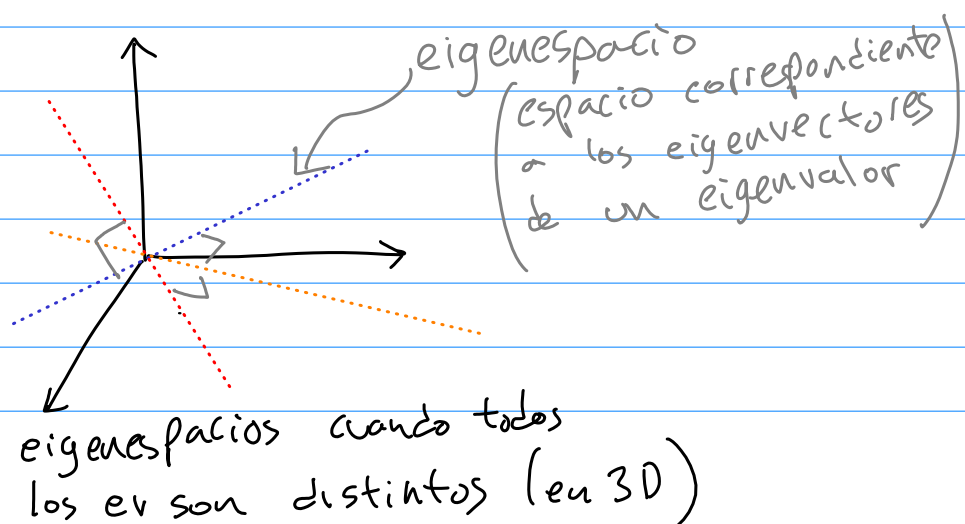 eigenespacio
(espacio correspondiente
a los eigenvectores
de un eigenvalor)
eigenespacios cuando todos
los ev son distintos (en 3D)